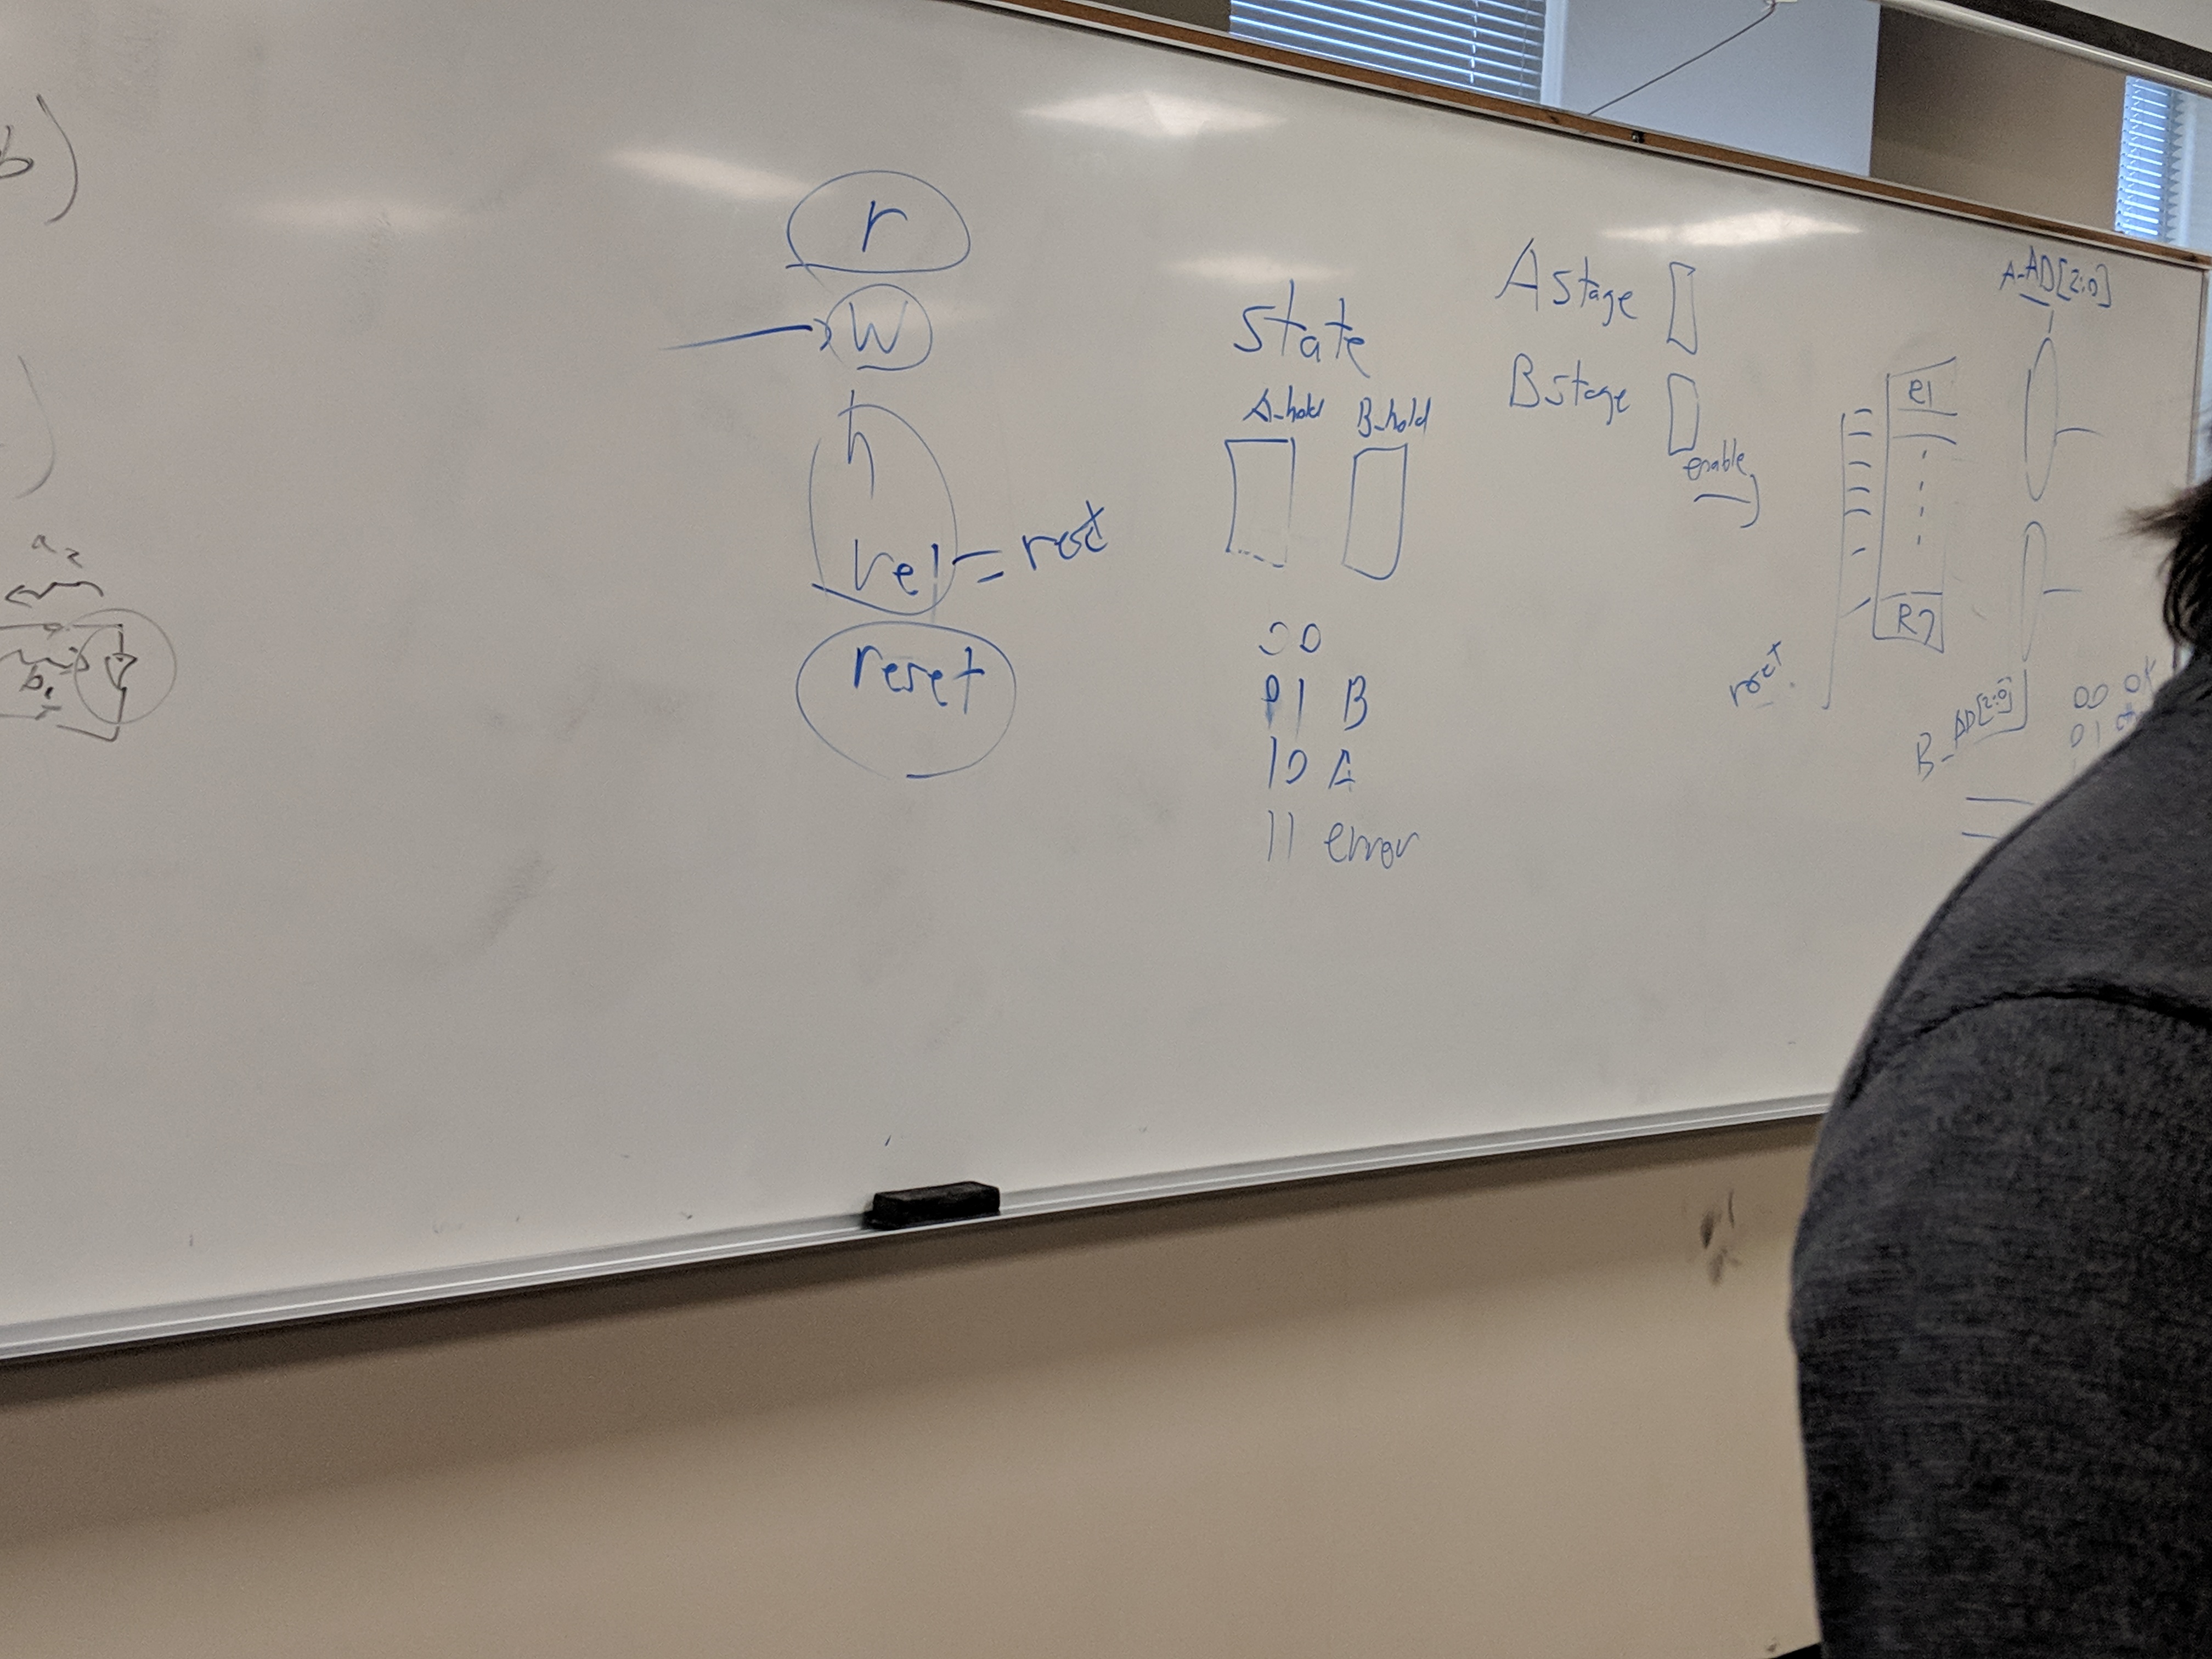 b)
a2
b1
r
w
h
rel = reset
reset
State
A-hold B-hold
00
01 B
10 A
11 error
A stage
B stage
enable
reset
R1
R7
A-AD[2:0]
B-AD[2:0]
00 OK
01